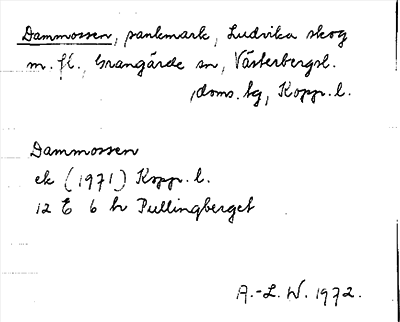 Dammossen, sankmark, Ludvika skog
m. fl., Grangärde sn, Västerbergsl.
doms. bg, Kopp. l.
Dammossen
ek (1971) Kopp. l.
12 E 6 h Pullingberget
A.-L. W. 1972.